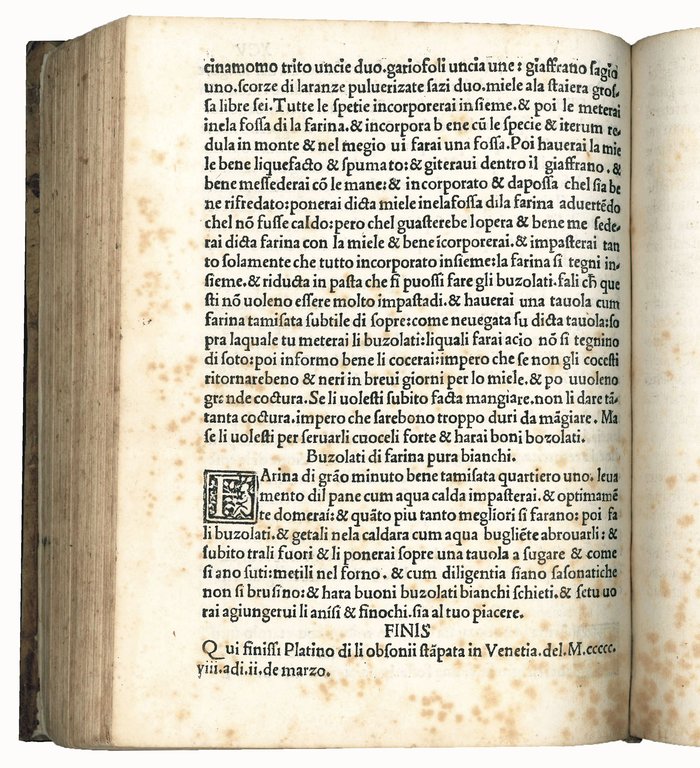 cinamomo trito uncie duo.gariofoli uncia une: giaffrano sagio
uno.scorze di laranze puluerizate sazi duo.miele ala staiera gros-
sa libre sei.Tutte le spetie incorporerai insieme.& poi le meterai
inela fossa di la farina.& incorpora bene cū le specie & iterum re-
dula in monte & nel megio ui farai una fossa.Poi hauerai la mie
le bene liquefacto & spumato:& giteraui dentro il giaffrano.&
bene messederai cō le mane:& incorporato & dapossa chel sia be
ne rifredato:ponerai dicta miele inelafossa dila farina aduertēdo
chel nō fusse caldo:pero chel guasterebe lopera & bene me sede-
rai dicta farina con la miele & bene īcorporerai.& impasterai tan
to solamente che tutto incorporato insieme:la farina si tegni in-
sieme.& riducta in pasta che si puossi fare gli buzolati.fali cħ que
sti nō uoleno essere molto impastadi.& hauerai una tauola cum
farina tamisata subtile di sopre:come neuegata su dicta tauola:so
pra laquale tu meterai li buzolati:liquali farai acio nō si tegnino
di soto:poi informo bene li cocerai:impero che se non gli cocesti
ritornarebeno & neri in breui giorni per lo miele.& po uuoleno
grande coctura.Se li uolesti subito facta mangiare.non li dare tā-
tanta coctura.impero che sarebono troppo duri da māgiare.Ma
se li uolesti per seruarli cuoceli forte & harai boni bozolati.
Buzolati di farina pura bianchi.
FArina di grāo minuto bene tamisata quartiero uno. leua
mento dil pane cum aqua calda impasterai.& optimamē
te domerai:& quāto piu tanto megliori si farano: poi fa
li buzolati.& getali nela caldara cum aqua bugliēte abrouarli:&
subito trali fuori & li ponerai sopre una tauola a sugare & come
si ano suti:metili nel forno.& cum diligentia siano sasonatiche
non si brusino:& hara buoni buzolati bianchi schieti.& setu uo
rai agiungerui li anisi & finochi.sia al tuo piacere.
FINIS
Qui finissi Platino di li obsonii stāpata in Venetia.del.M.ccccc.
viii.adi.ii.de marzo.